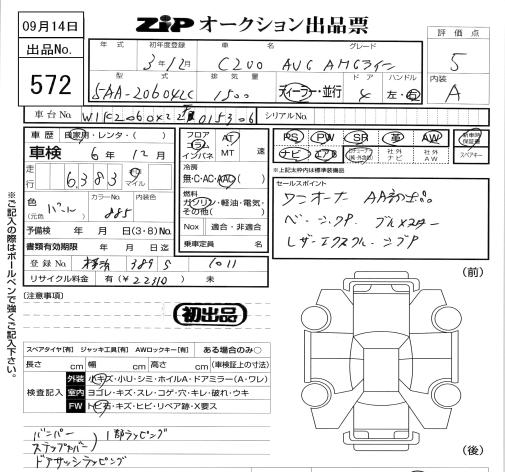 09月14日
出品No.
572
ZiP オークション出品票
評価点
5
内装
A
年式 初年度登録 車名 グレード
3年12月 C200 AVG AMGライン
型式 排気量 ドア ハンドル
5AA-206042C 1500 ディーラー・並行 4 左・右
車台No. シリアルNo.
車歴 自家用・レンタ・( )
車検 6年12月
走行 6,383 km マイル
色 (元色) カラーNo. 885 内装色
予備検 年 月 日(3・8)No.
書類有効期限 年 月 日迄
登録No. 389 S 1011
リサイクル料金 有(¥22310) 未
フロア コラム インパネ AT MT 速
冷房 無・C・AC・AAC
燃料 ガソリン・軽油・電気・その他( )
Nox 適合・非適合
乗車定員 名
PS PW SR 革 AW 新車時保証書
ナビ エアB 社外ナビ 社外AW スペアキー
*上記太枠内は標準装備品
セールスポイント
ワンオーナー
レザーエクスクルーシブP
(注意事項)
初出品
スペアタイヤ[有] ジャッキ工具[有] AWロックキー[有] ある場合のみ○
長さ cm 幅 cm 高さ cm (車検証上の寸法)
検査記入
外装 小キズ・小リ・シミ・ホイルA・ドアミラー(A・ワレ)
室内 ヨゴレ・キズ・スレ・コゲ・穴・キレ・破れ・ウキ
FW トビ石・キズ・ヒビ・リペア跡・X要ス
バンパー
ステップカバー ) 1部ラッピング
ドアサッシラッピング
(前)
(後)
※ご記入の際はボールペンで強くご記入下さい。